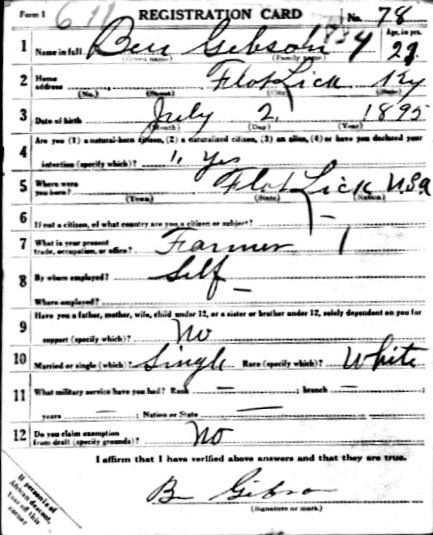 Form 1 REGISTRATION CARD No. 78
1 Name in full Ben Gibson Age, in yrs.
(Given name) (Family name)
2 Home address Flat Lick Ky
(No.) (Street) (City) (State)
3 Date of birth July 2, 1895
(Month) (Day) (Year)
4 Are you (1) a natural-born citizen, (2) a naturalized citizen, (3) an alien, (4) or have you declared your
intention (specify which)? 1, Yes
5 Where were you born? Flat Lick USA
(Town) (State) (Nation)
6 If not a citizen, of what country are you a citizen or subject? —
7 What is your present trade, occupation, or office? Farmer
8 By whom employed? Self
Where employed? —
9 Have you a father, mother, wife, child under 12, or a sister or brother under 12, solely dependent on you for
support (specify which)? No
10 Married or single (which)? Single Race (specify which)? White
11 What military service have you had? Rank — ; branch —
years — ; Nation or State —
12 Do you claim exemption from draft (specify grounds)? No
I affirm that I have verified above answers and that they are true.
Ben Gibson
(Signature or mark)
If person is of African descent, tear off this corner